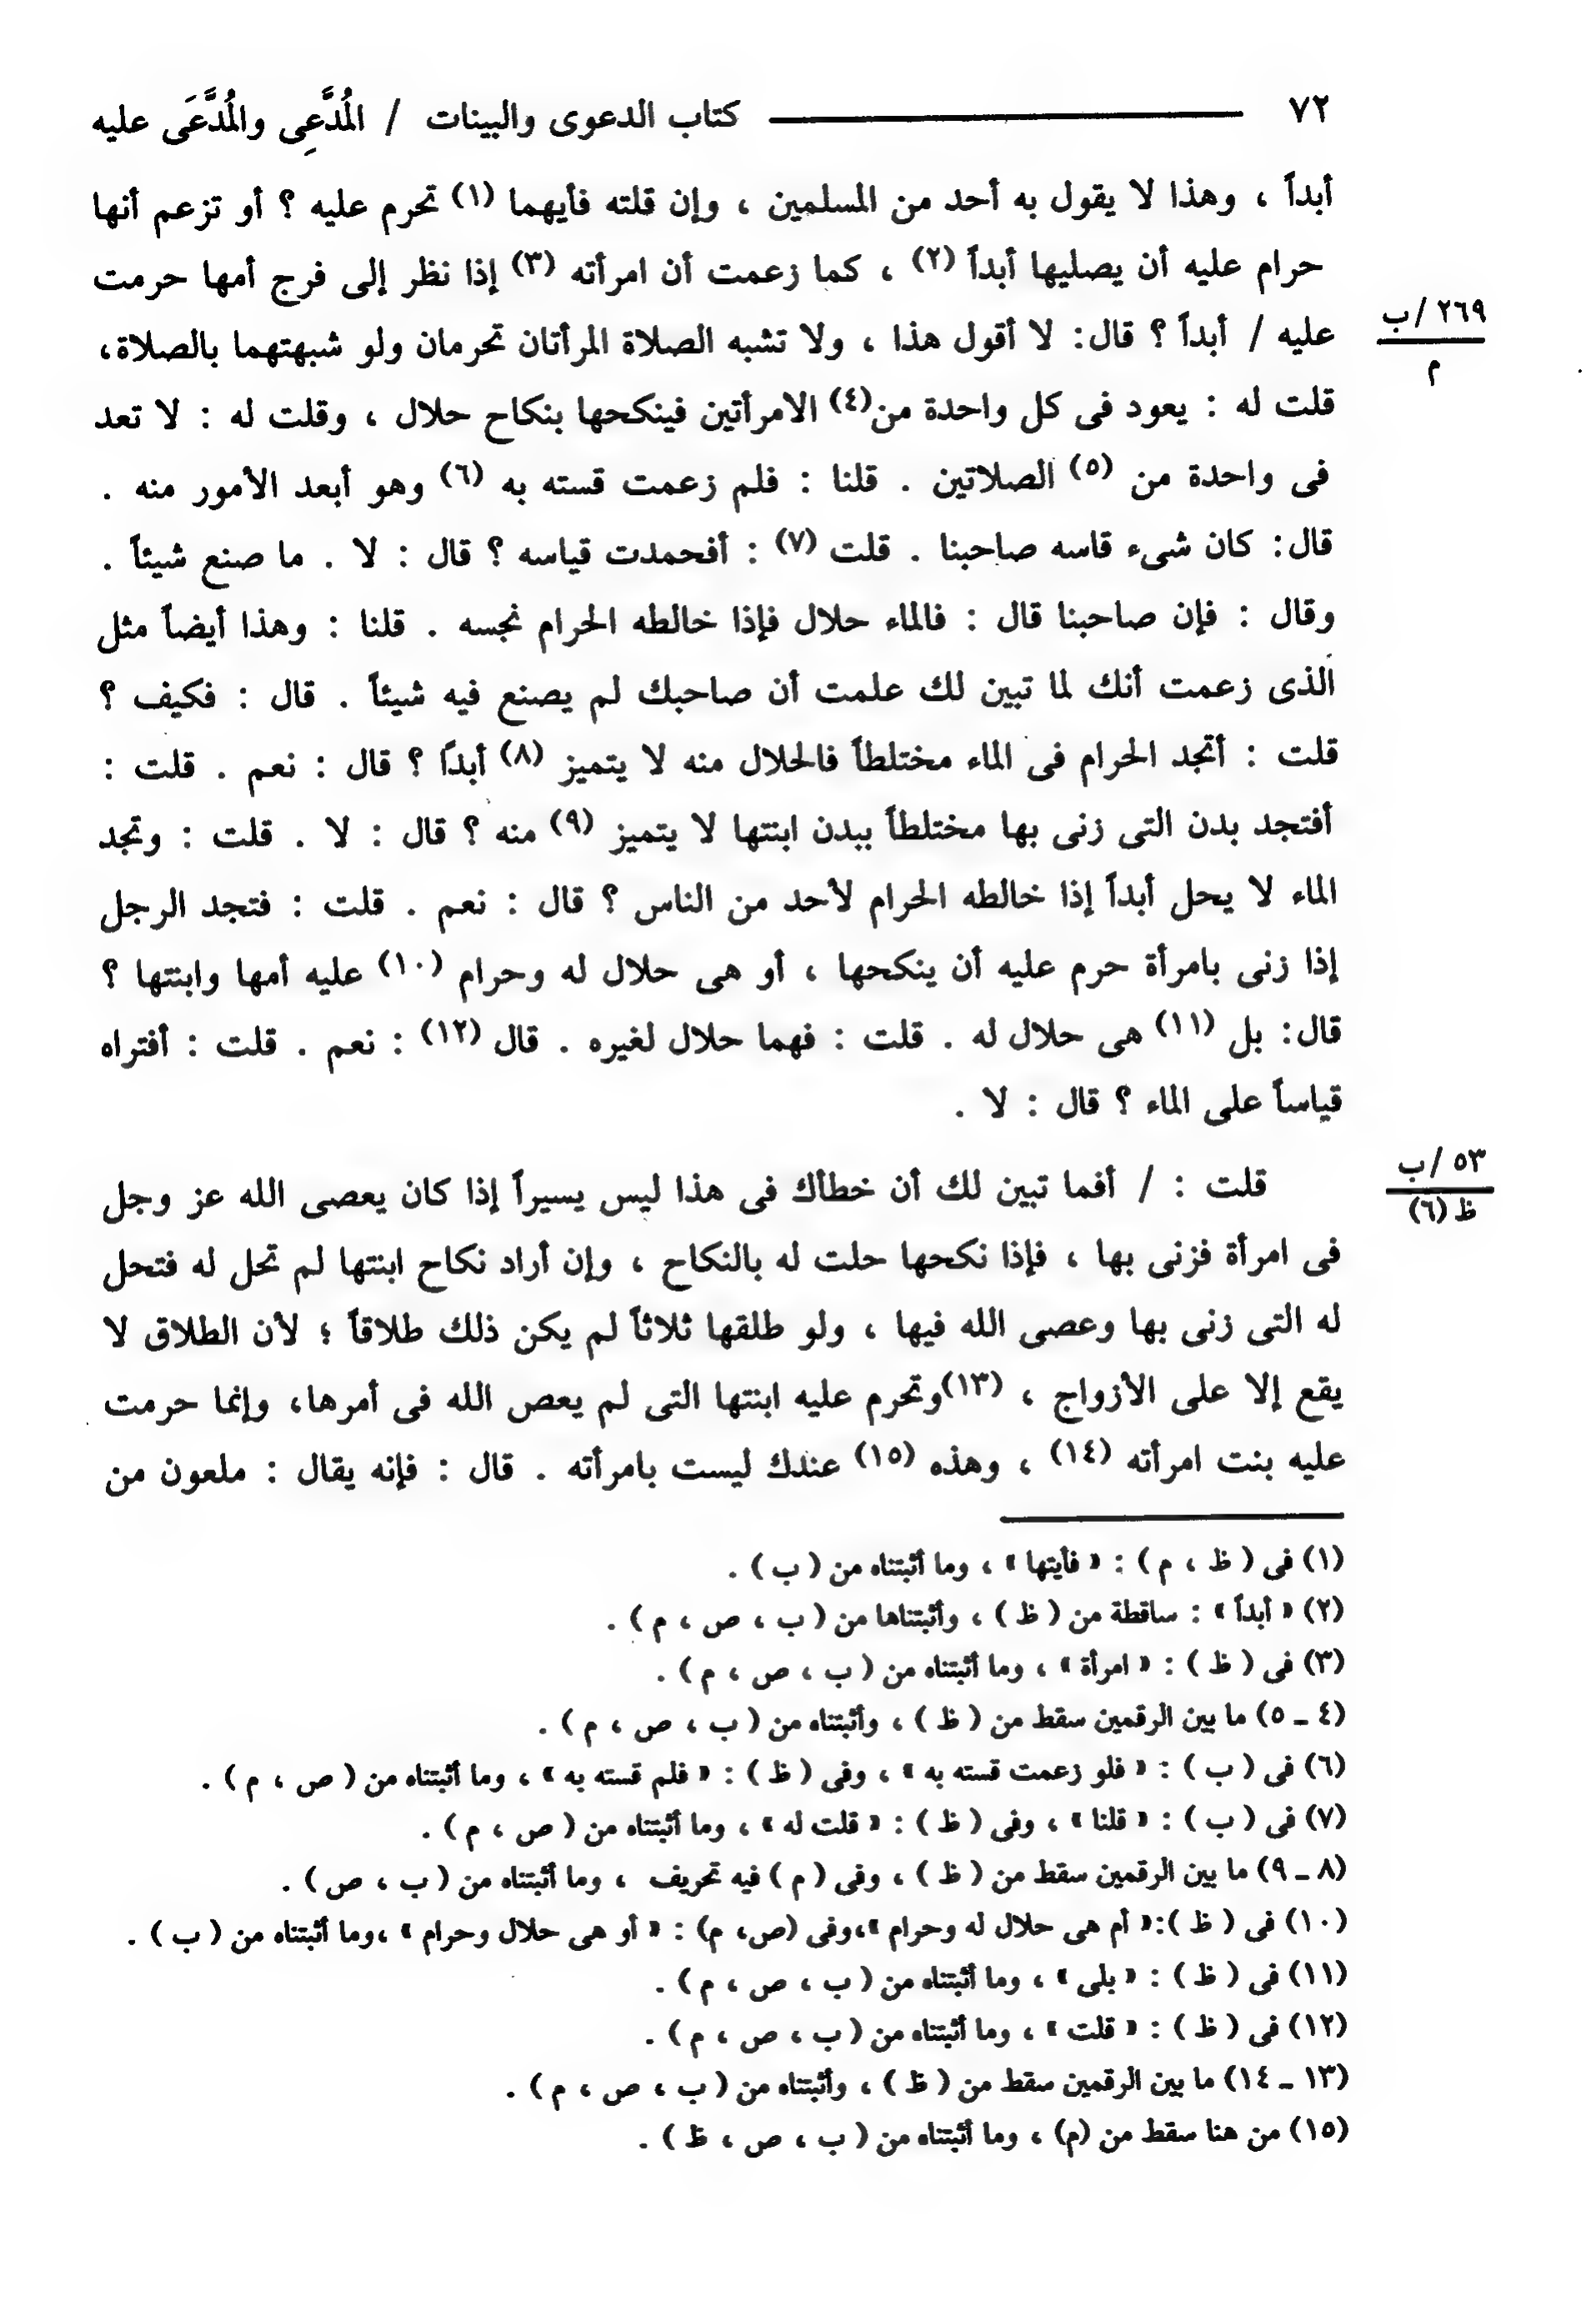 ٧٢ كتاب الدعوى والبينات / المُدَّعِى والمُدَّعَى عليه
أبداً ، وهذا لا يقول به أحد من المسلمين ، وإن قلته فأيهما (١) تحرم عليه ؟ أو تزعم أنها
حرام عليه أن يصليها أبداً (٢) ، كما زعمت أن امرأته (٣) إذا نظر إلى فرج أمها حرمت
عليه / أبداً ؟ قال: لا أقول هذا ، ولا تشبه الصلاة المرأتان تحرمان ولو شبهتهما بالصلاة،
٢٦٩ /ب
م
قلت له : يعود فى كل واحدة من(٤) الامرأتين فينكحها بنكاح حلال ، وقلت له : لا تعد
فى واحدة من (٥) الصلاتين . قلنا : فلم زعمت قسته به (٦) وهو أبعد الأمور منه .
قال: كان شىء قاسه صاحبنا . قلت (٧) : أفحمدت قياسه ؟ قال : لا . ما صنع شيئاً .
وقال : فإن صاحبنا قال : فالماء حلال فإذا خالطه الحرام نجسه . قلنا : وهذا أيضاً مثل
الذى زعمت أنك لما تبين لك علمت أن صاحبك لم يصنع فيه شيئاً . قال : فكيف ؟
قلت : أتجد الحرام فى الماء مختلطاً فالحلال منه لا يتميز (٨) أبداً ؟ قال : نعم . قلت :
أفتجد بدن التى زنى بها مختلطاً ببدن ابنتها لا يتميز (٩) منه ؟ قال : لا . قلت : وتجد
الماء لا يحل أبداً إذا خالطه الحرام لأحد من الناس ؟ قال : نعم . قلت : فتجد الرجل
إذا زنى بامرأة حرم عليه أن ينكحها ، أو هى حلال له وحرام (١٠) عليه أمها وابنتها ؟
قال: بل (١١) هى حلال له . قلت : فهما حلال لغيره . قال (١٢) : نعم . قلت : أفتراه
قياساً على الماء ؟ قال : لا .
قلت : / أفما تبين لك أن خطأك فى هذا ليس يسيراً إذا كان يعصى الله عز وجل
٥٣ /ب
ظ (٦)
فى امرأة فزنى بها ، فإذا نكحها حلت له بالنكاح ، وإن أراد نكاح ابنتها لم تحل له فتحل
له التى زنى بها وعصى الله فيها ، ولو طلقها ثلاثاً لم يكن ذلك طلاقاً ؛ لأن الطلاق لا
يقع إلا على الأزواج ، (١٣)وتحرم عليه ابنتها التى لم يعص الله فى أمرها، وإنما حرمت
عليه بنت امرأته (١٤) ، وهذه (١٥) عندك ليست بامرأته . قال : فإنه يقال : ملعون من
(١) فى ( ظ ، م ) : « فأيتها » ، وما أثبتناه من ( ب ) .
(٢) « أبداً » : ساقطة من ( ظ ) ، وأثبتناها من ( ب ، ص ، م ) .
(٣) فى ( ظ ) : « امرأة » ، وما أثبتناه من ( ب ، ص ، م ) .
(٤ ـ ٥) ما بين الرقمين سقط من ( ظ ) ، وأثبتناه من ( ب ، ص ، م ) .
(٦) فى ( ب ) : « فلو زعمت قسته به » ، وفى ( ظ ) : « فلم قسته به » ، وما أثبتناه من ( ص ، م ) .
(٧) فى ( ب ) : « قلنا » ، وفى ( ظ ) : « قلت له » ، وما أثبتناه من ( ص ، م ) .
(٨ ـ ٩) ما بين الرقمين سقط من ( ظ ) ، وفى ( م ) فيه تحريف ، وما أثبتناه من ( ب ، ص ) .
(١٠) فى ( ظ ):« أم هى حلال له وحرام »،وفى (ص، م) : « أو هى حلال وحرام » ،وما أثبتناه من ( ب ) .
(١١) فى ( ظ ) : « بلى » ، وما أثبتناه من ( ب ، ص ، م ) .
(١٢) فى ( ظ ) : « قلت » ، وما أثبتناه من ( ب ، ص ، م ) .
(١٣ ـ ١٤) ما بين الرقمين سقط من ( ظ ) ، وأثبتناه من ( ب ، ص ، م ) .
(١٥) من هنا سقط من (م) ، وما أثبتناه من ( ب ، ص ، ظ ) .